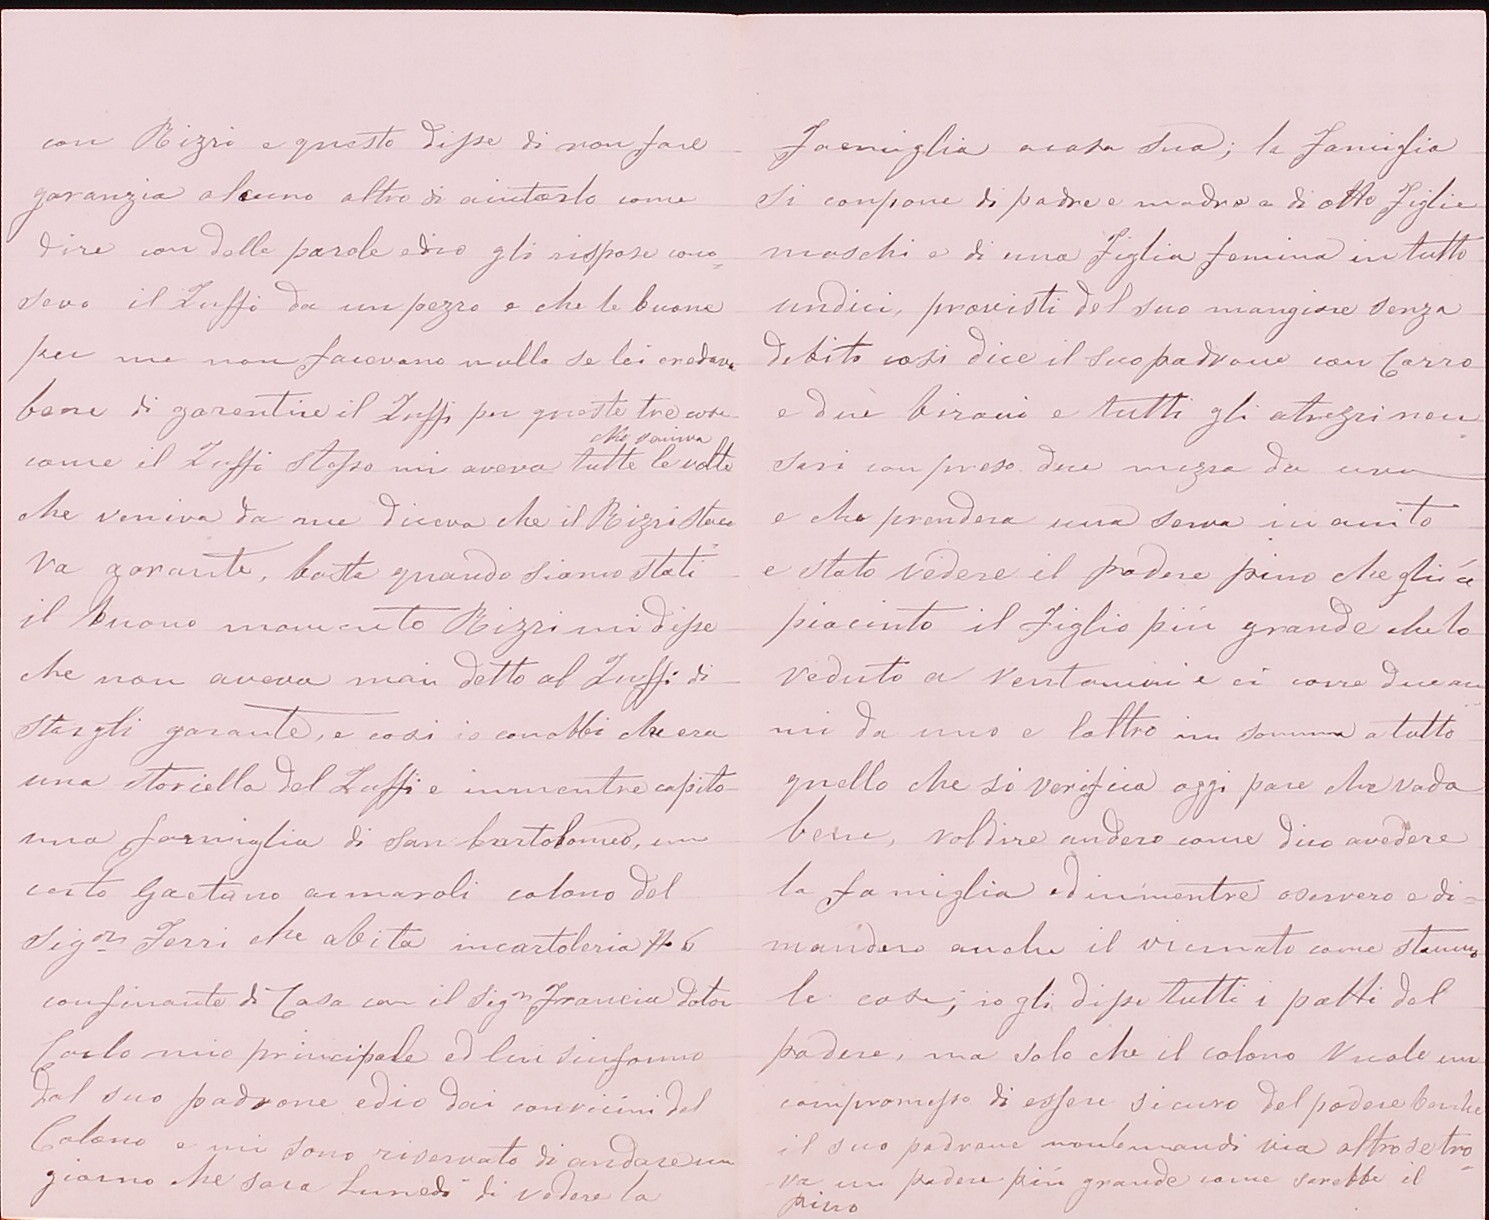 con Rizzi e questo disse di non fare
garanzia alcuno altro di aiutarlo come
dire con delle parole ed io gli rispose cono=
sevo il Zuffi da un pezzo e che le buone
per me non facevano nulla se lei credeva
bene di garentire il Zuffi per queste tre cose
che veniva
come il Zuffi stesso mi aveva tutte le volte
che veniva da me diceva che il Rizzi stava
va garante, basta quando siamo stati
il buono momento Rizzi mi disse
che non aveva mai detto al Zuffi di
stargli garante, e cosi io conobbi che era
una storiella del Zuffi e inmentre capito
una famiglia di San bartolomeo, un
certo Gaetano armaroli colono del
Sigor Ferri che abita incartoleria N. 6
confinante di Casa con il Sigr Francia dotor
Carlo mio principale ed lui sinformo
dal suo padrone edio dai convicini del
Colono e mi sono riservato di andare un
giorno che sara Lunedi di vedere la
Famiglia acasa sua; la Famiglia
si conpone di padre e madre e di otto Figlie
maschi e di una Figlia femina in tutto
undici, provisti del suo mangiare senza
debito cosi dice il suo padrone con Carro
e due birocci e tutti gli atrezzi nece
sari con preso due mezza da uva
e che prendera una serva in aiuto
e stato vedere il podere pino che gli é
piacinto il Figlio piú grande che lo
veduto a ventanni e ci corre due an
ni da uno e laltro in somma a tutto
quello che si verifica oggi pare che vada
bene, voldire andero come dico avedere
la famiglia ed inmentre oservero e di=
mandero anche il vicinato come stanno
le cose; io gli disse tutti i patti del
podere, ma solo che il colono vuole un
compromesso di essere sicuro del podere benche
il suo padrone nonlomandi via altro se tro=
va un podere piú grande come sarebbe il
pino